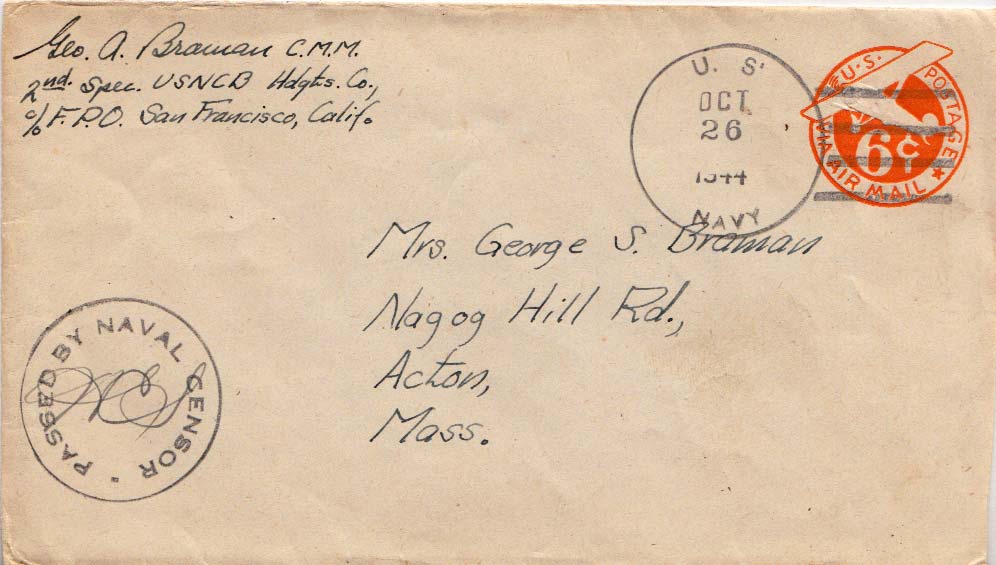 Geo. A. Braman C.M.M.
2nd. Spec. USNCB Hdqts. Co.,
c/o F.P.O. San Francisco, Calif.
U. S.
OCT
26
1944
NAVY
U.S. POSTAGE
6¢
VIA AIR MAIL
Mrs. George S. Braman
Nagog Hill Rd.,
Acton,
Mass.
PASSED BY NAVAL CENSOR